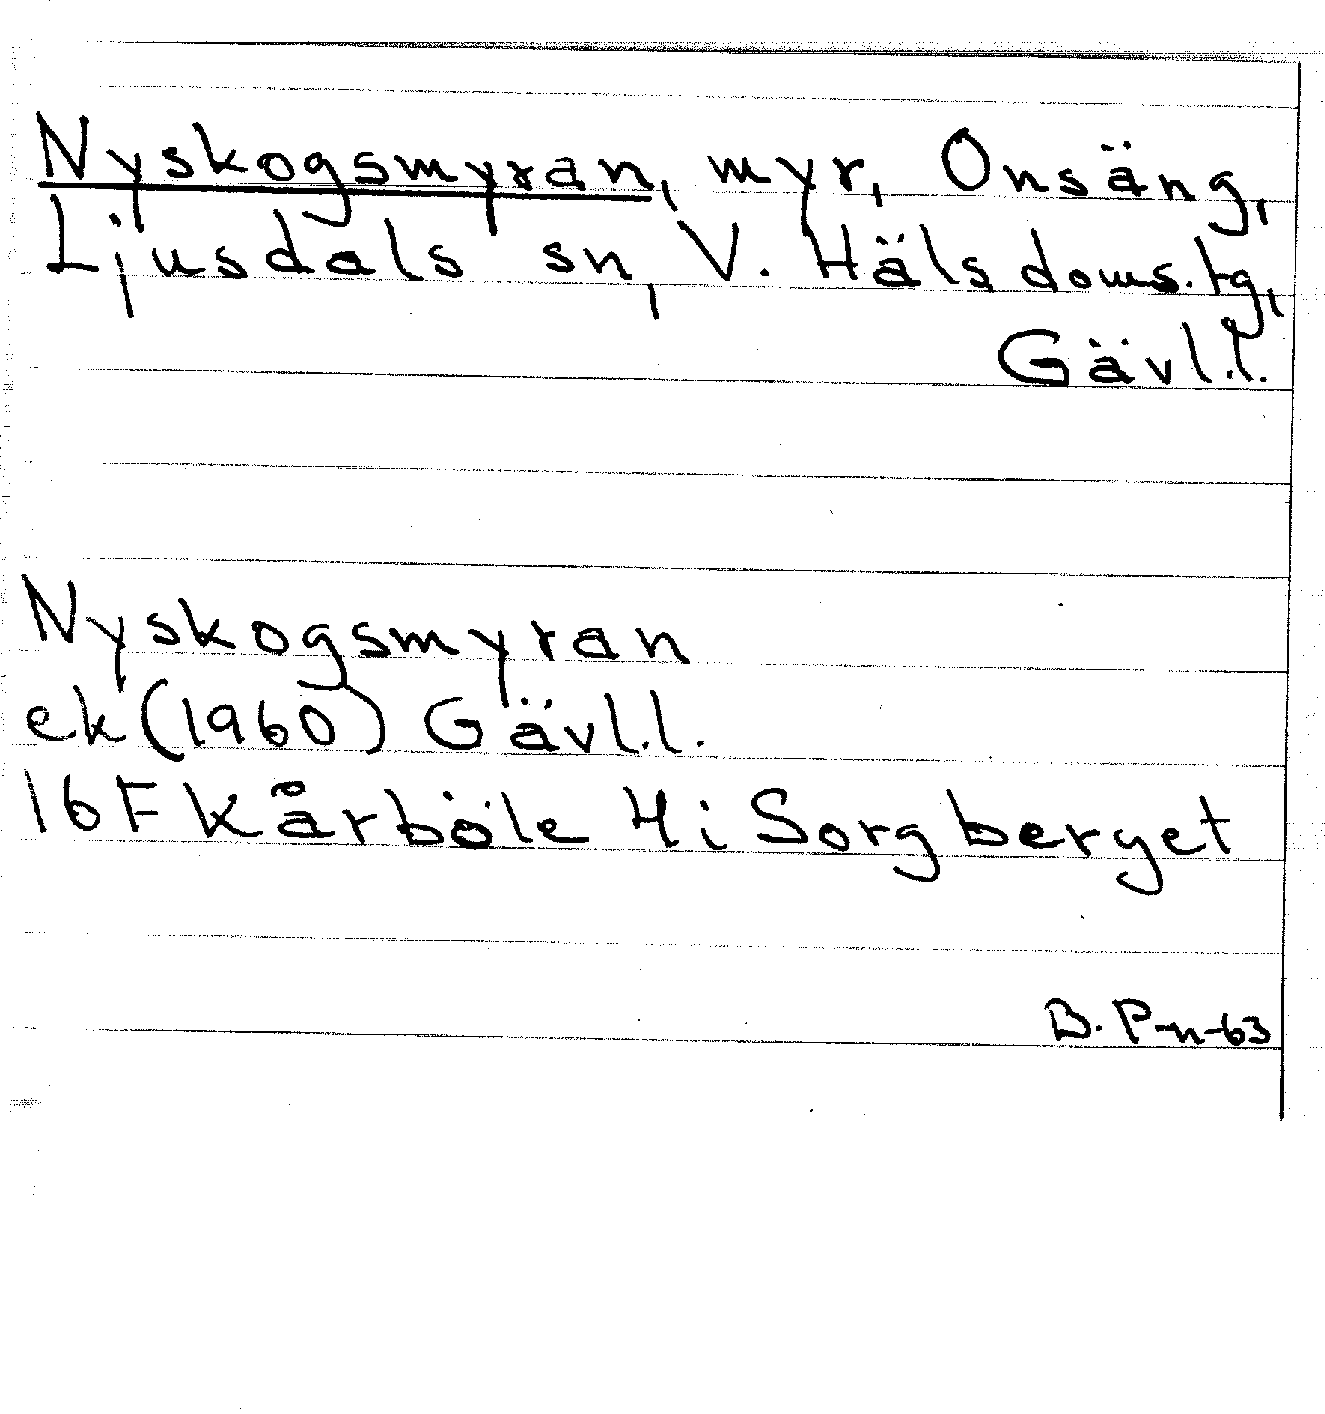 Nyskogsmyran, myr, Onsäng,
Ljusdals sn, V. Häls doms.tg,
Gävl.l.
Nyskogsmyran
ek (1960) Gävl.l.
16F Kårböle 4i Sorgberget
B. P-n-63